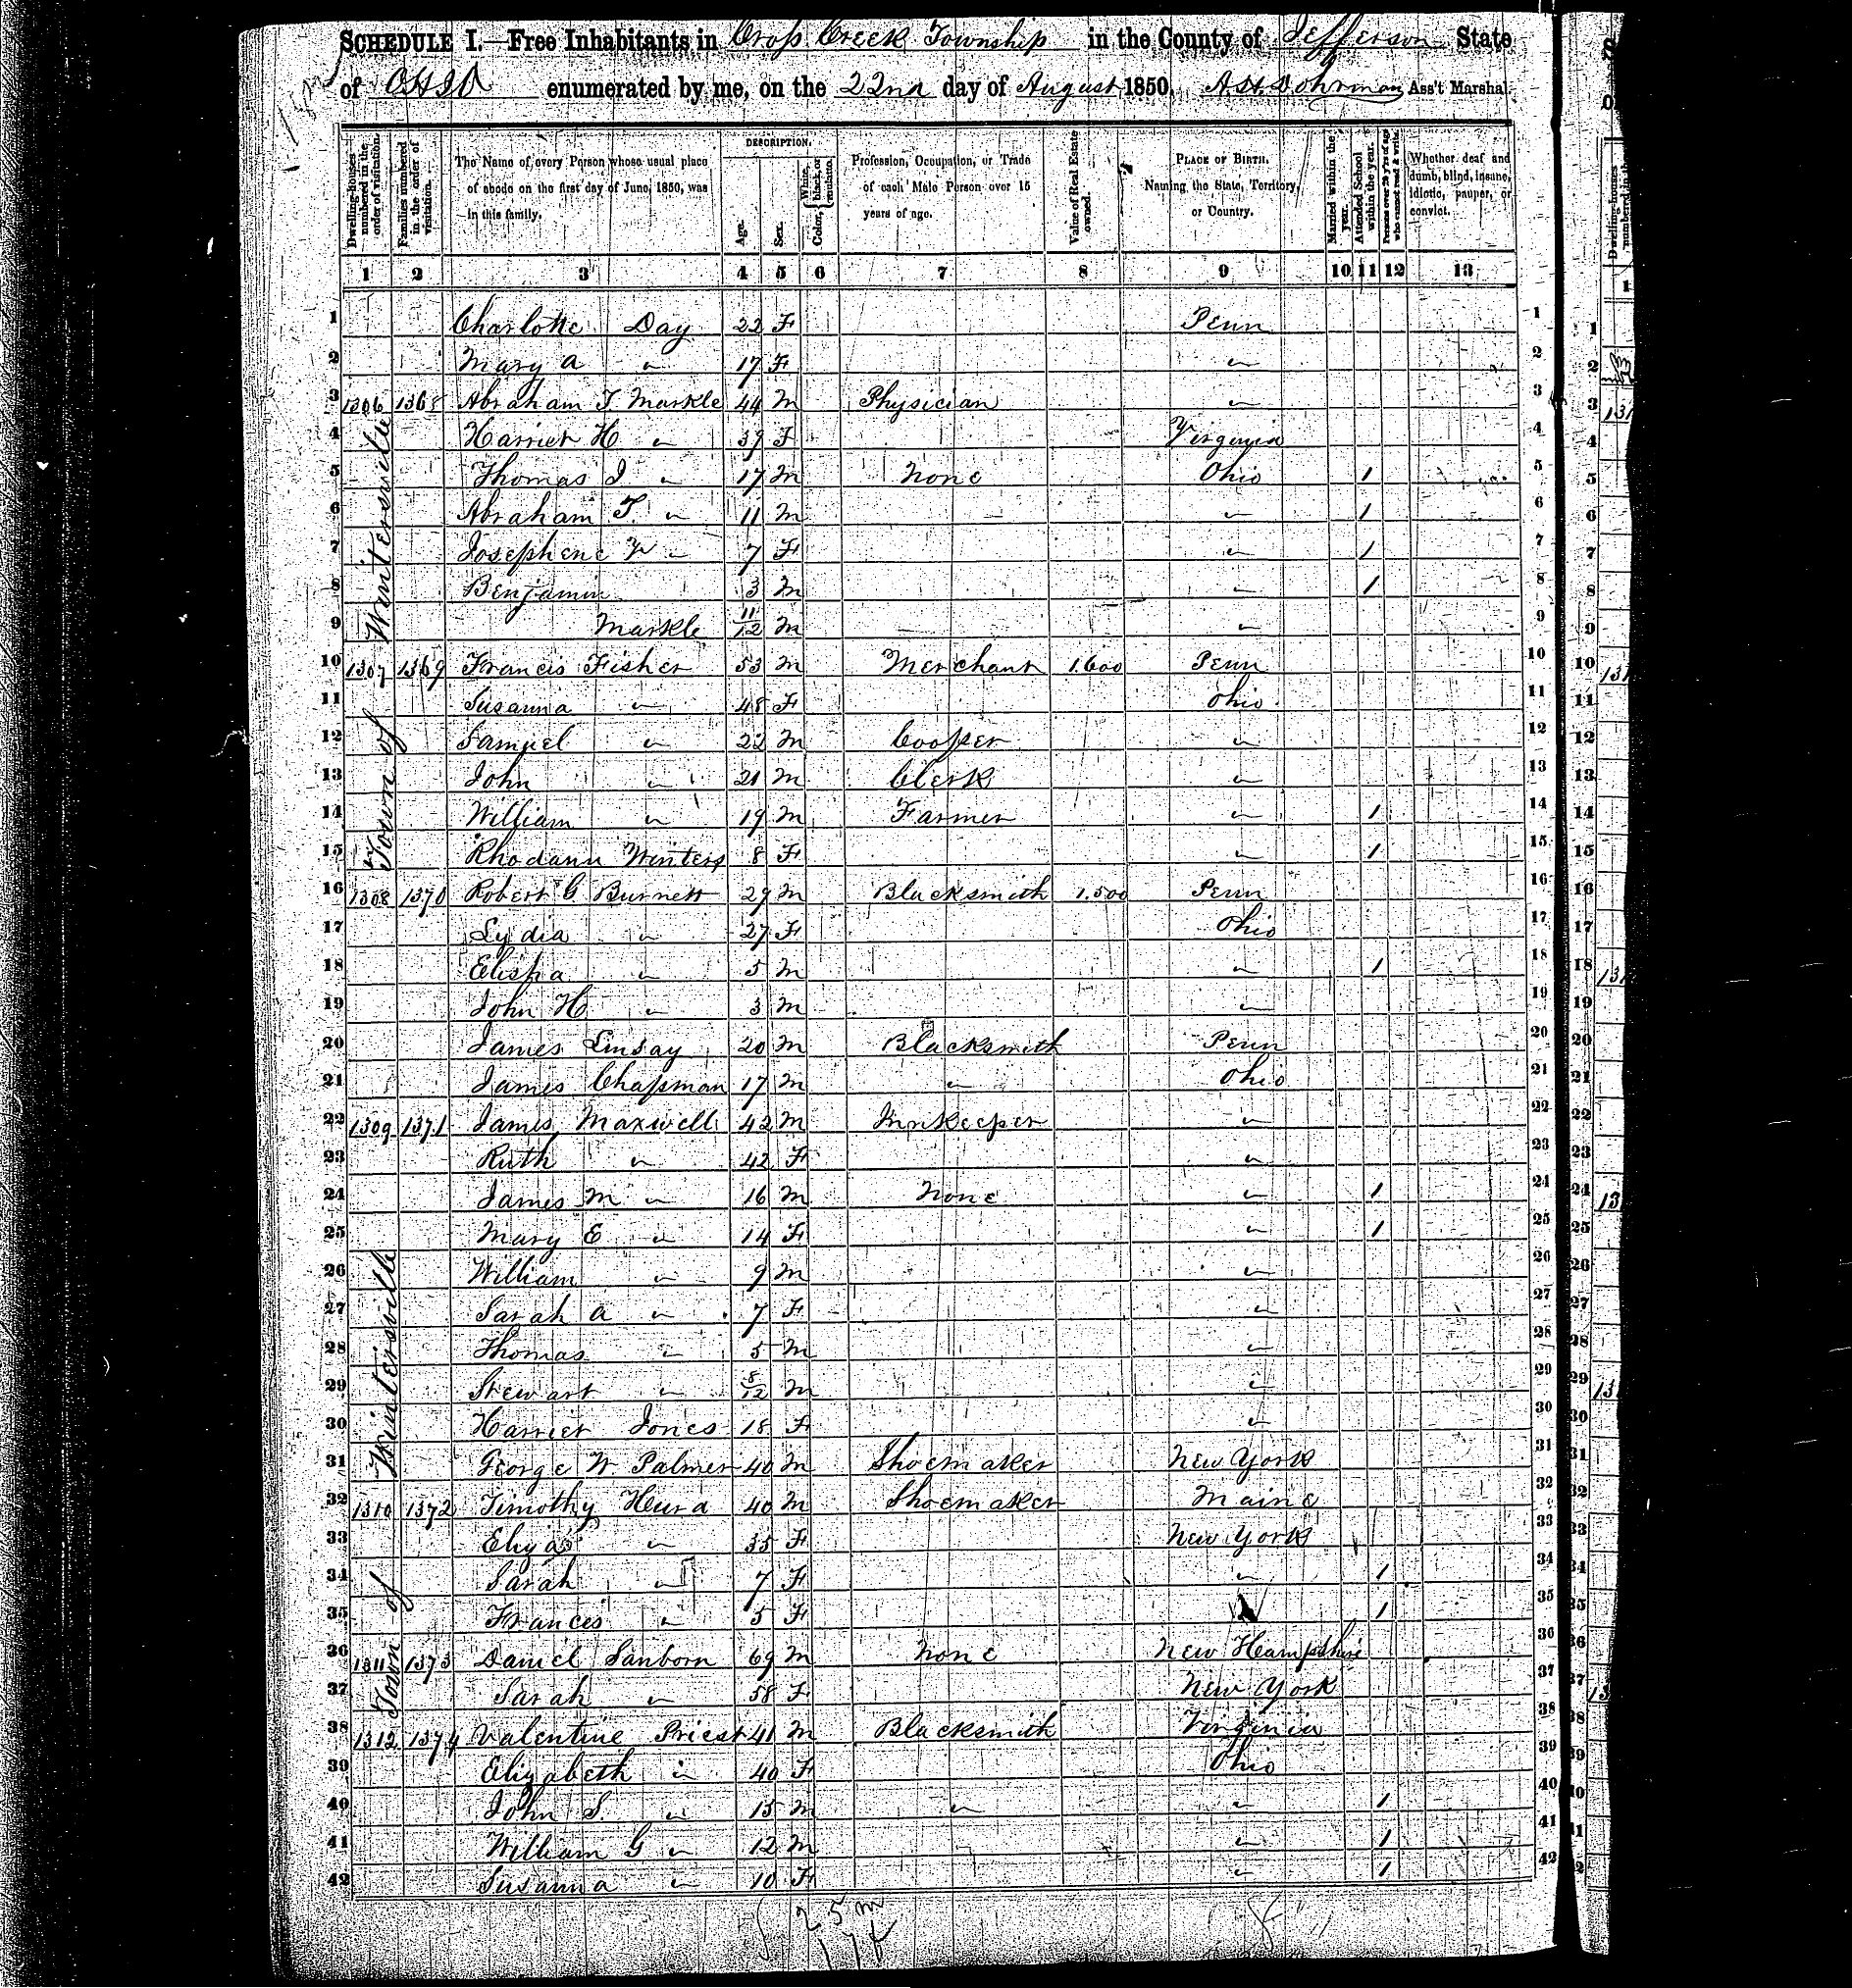 SCHEDULE I.—Free Inhabitants in Cross Creek Township in the County of Jefferson State
of OHIO enumerated by me, on the 22nd day of August 1850. Dohrman Ass't Marshal.
Dwelling-houses numbered in the order of visitation.
Families numbered in the order of visitation.
The Name of every Person whose usual place of abode on the first day of June, 1850, was in this family.
DESCRIPTION.
Age.
Sex.
Color, { White, black, or mulatto.
Profession, Occupation, or Trade of each Male Person over 15 years of age.
Value of Real Estate owned.
PLACE OF BIRTH. Naming the State, Territory, or Country.
Married within the year.
Attended School within the year.
Persons over 20 y'rs of age who cannot read & write.
Whether deaf and dumb, blind, insane, idiotic, pauper, or convict.
1 2 3 4 5 6 7 8 9 10 11 12 13
Town of Wintersville
Town of Wintersville
1 Charlotte Day 22 F Penn 1
2 Mary A " 17 F " 2
3 1306 1368 Abraham T Markle 44 M Physician " 3
4 Harriet H " 39 F Virginia 4
5 Thomas J " 17 M None Ohio 1 5
6 Abraham T. " 11 M " 1 6
7 Josephene " 7 F " 1 7
8 Benjamin 3 M " 1 8
9 Markle 11/12 M " 9
10 1307 1369 Francis Fisher 53 M Merchant 1.600 Penn 10
11 Susanna " 48 F Ohio 11
12 Samuel " 22 M Cooper " 12
13 John " 21 M Clerk " 13
14 William " 19 M Farmer " 1 14
15 Rhodann Winters 8 F " 1 15
16 1308 1370 Robert C Burnett 29 M Blacksmith 1.500 Penn 16
17 Lydia " 27 F Ohio 17
18 Elisha " 5 M " 1 18
19 John H " 3 M " 19
20 James Linsay 20 M Blacksmith Penn 20
21 James Chapman 17 M " Ohio 21
22 1309 1371 James Maxwell 42 M Innkeeper " 22
23 Ruth " 42 F " 23
24 James M " 16 M None " 1 24
25 Mary E " 14 F " 1 25
26 William " 9 M " 26
27 Sarah A " 7 F " 27
28 Thomas " 5 M " 28
29 Stewart " 8/12 M " 29
30 Harriet Jones 18 F " 30
31 George W Palmer 40 M Shoemaker New York 31
32 1310 1372 Timothy Hurd 40 M Shoemaker Maine 32
33 Eliza " 35 F New York 33
34 Sarah " 7 F " 1 34
35 Frances " 5 F 1 35
36 1311 1373 Daniel Sanborn 69 M None New Hampshire 36
37 Sarah " 58 F New York 37
38 1312 1374 Valentine Priest 41 M Blacksmith Virginia 38
39 Elizabeth " 40 F Ohio 39
40 John S. " 15 M " " 1 40
41 William G " 12 M " 1 41
42 Susanna " 10 F " 1 42
25 m
17 f